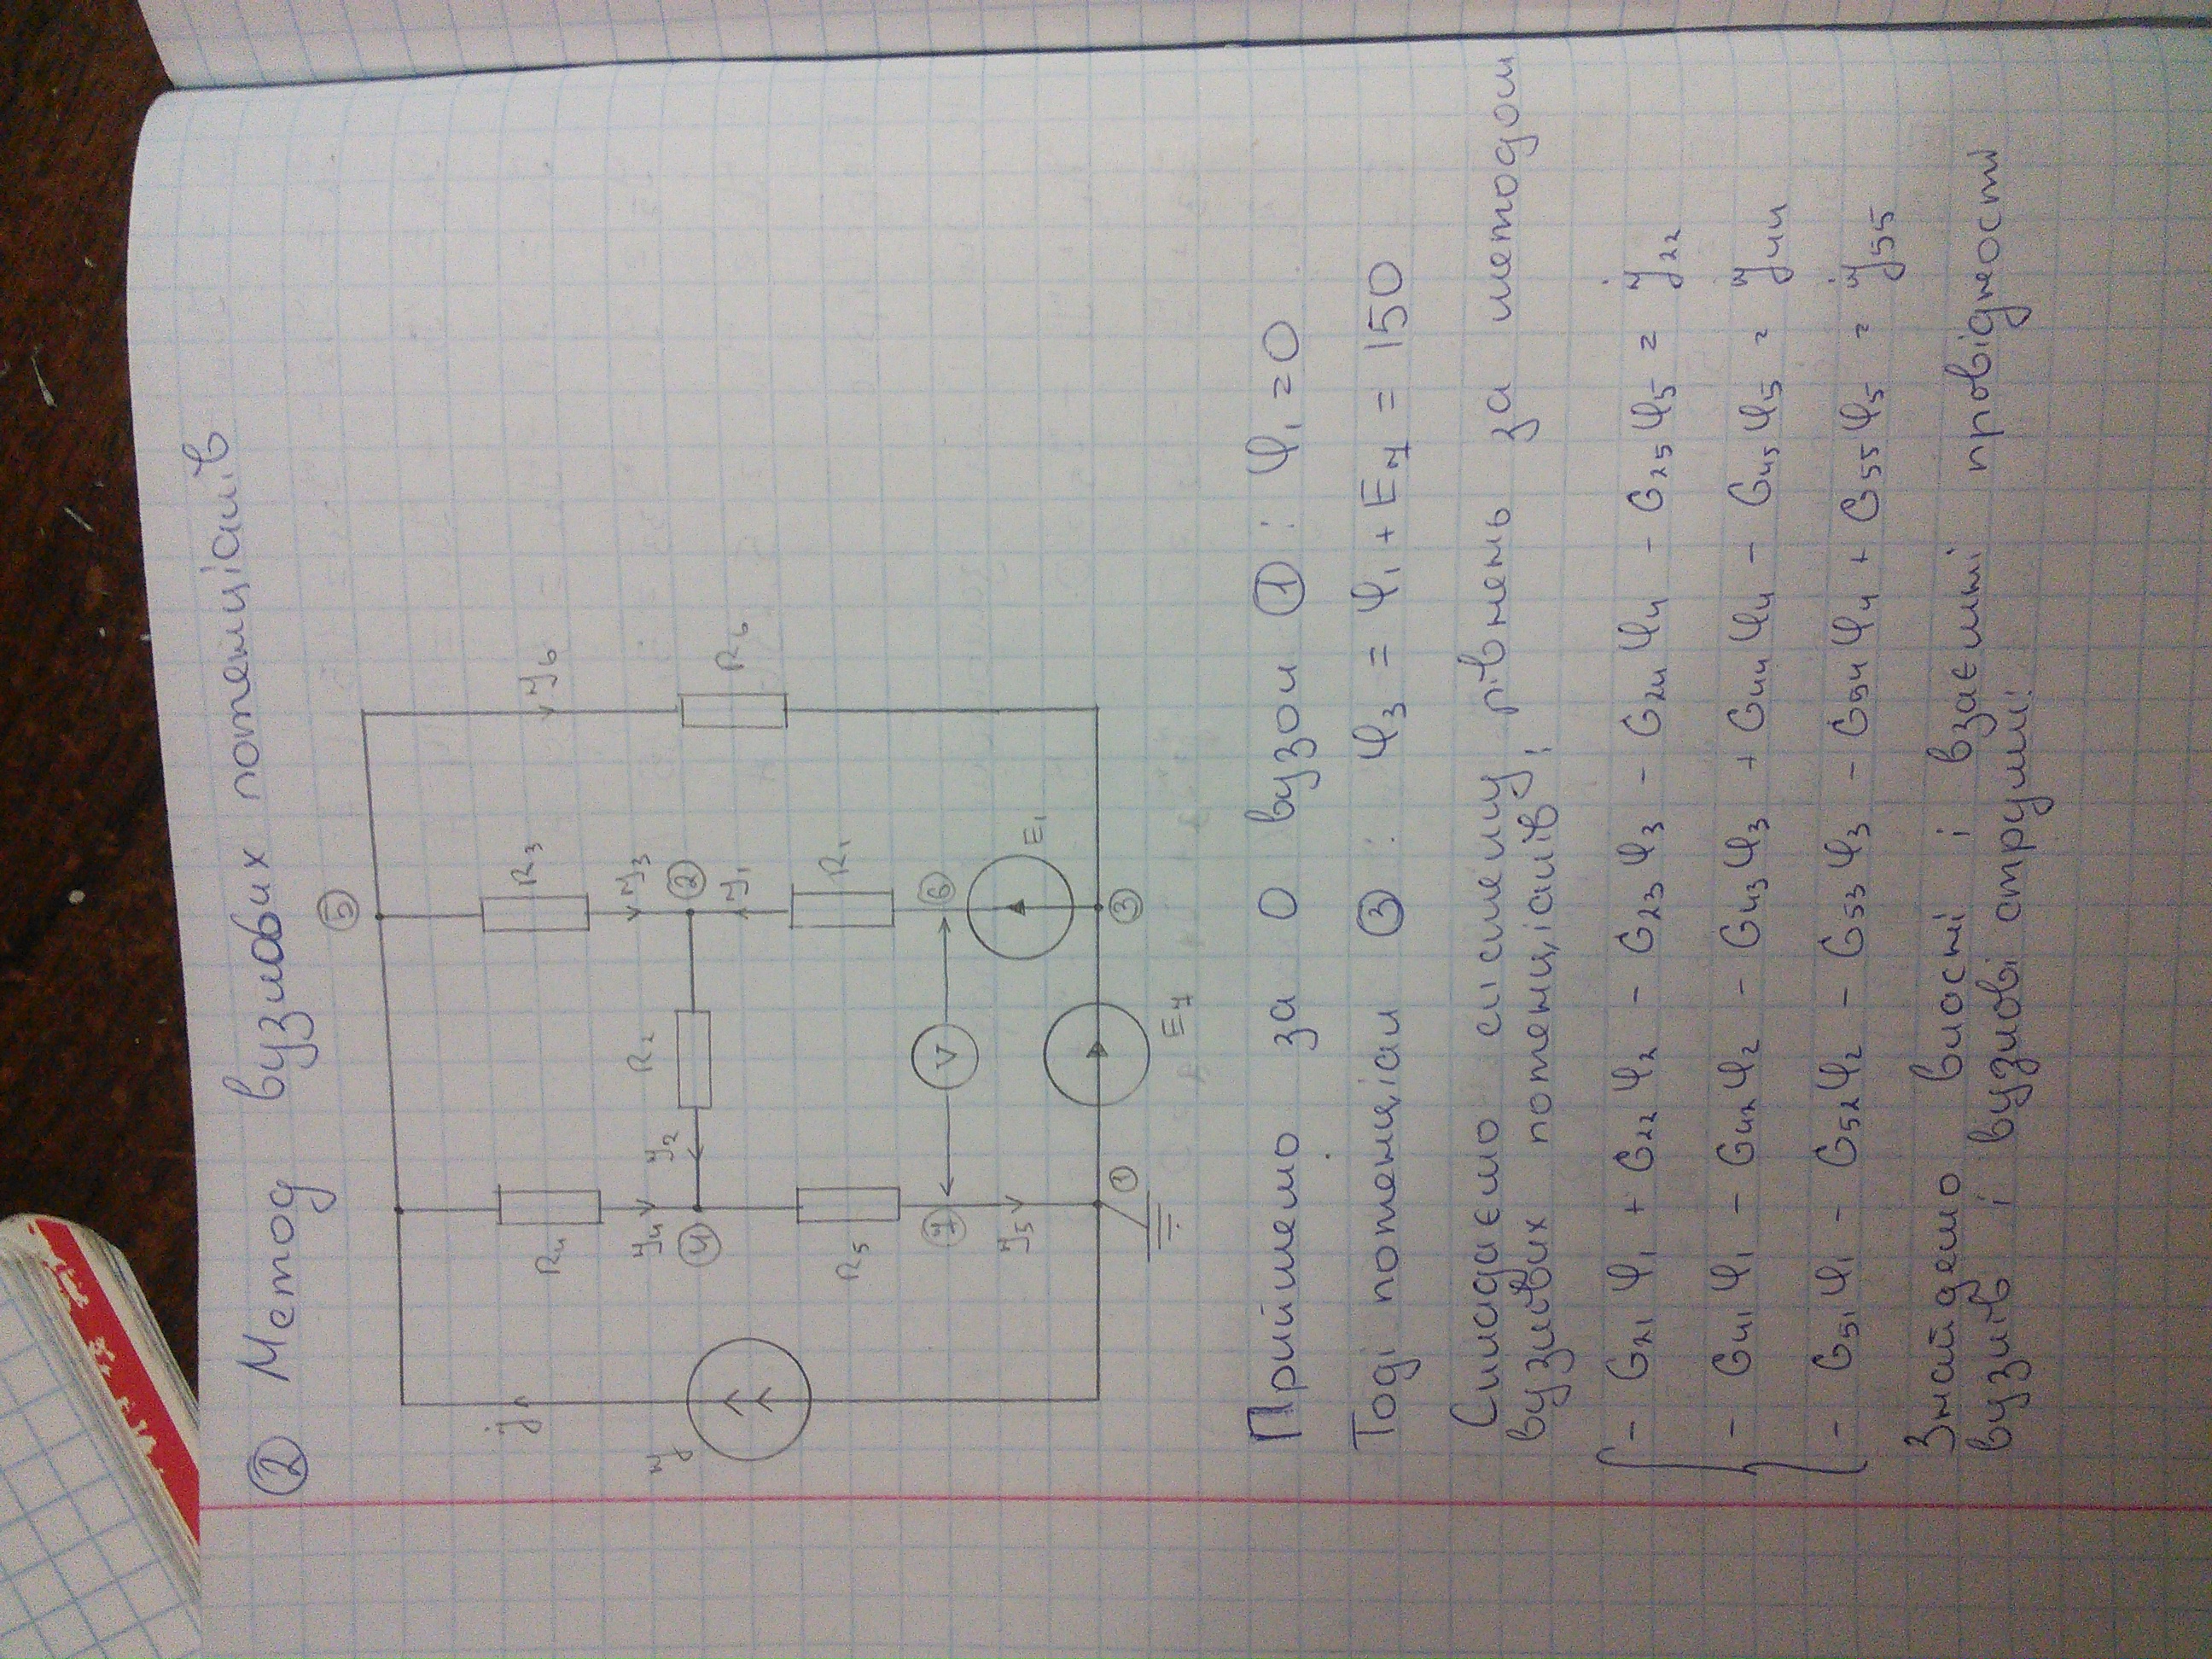 ② Метод вузлових потенціалів
⑤
R4 R3 J6
j J4 J3 R6
J R2 ②
④ J2 J1
R5 R1
⑦ V ⑥
J5 E1
① E7 ③
Приймемо за 0 вузол ①: φ1 = 0
Тоді потенціал ③: φ3 = φ1 + E7 = 150
Складаємо систему рівнень за методом
вузлових потенціалів:
- G21 φ1 + G22 φ2 - G23 φ3 - G24 φ4 - G25 φ5 = J22
- G41 φ1 - G42 φ2 - G43 φ3 + G44 φ4 - G45 φ5 = J44
- G51 φ1 - G52 φ2 - G53 φ3 - G54 φ4 + G55 φ5 = J55
Знайдемо власні і взаємні провідності
вузлів і вузлові струми: